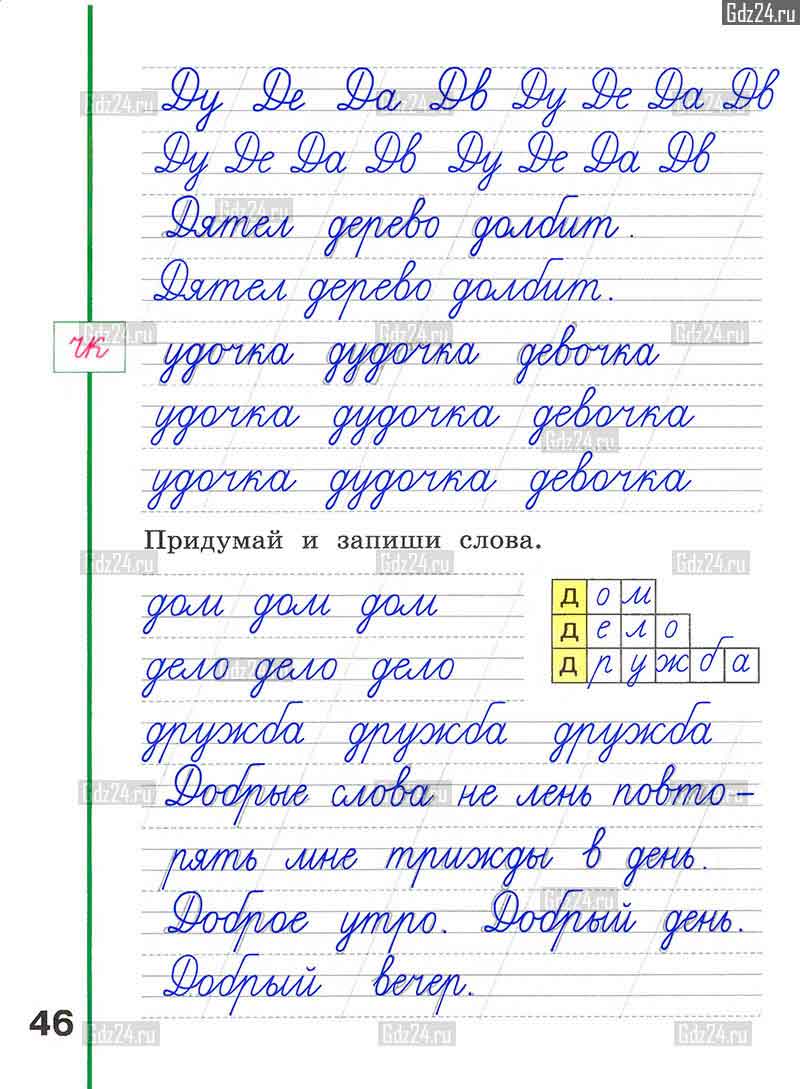 Gdz24.ru
Ду Де Да Дв Ду Де Да Дв
Ду Де Да Дв Ду Де Да Дв
Дятел дерево долбит.
Дятел дерево долбит.
чк удочка дудочка девочка
удочка дудочка девочка
удочка дудочка девочка
Придумай и запиши слова.
дом дом дом
дело дело дело
дом
дело
дружба
дружба дружба дружба
Добрые слова не лень повто-
рять мне трижды в день.
Доброе утро. Добрый день.
Добрый вечер.
46